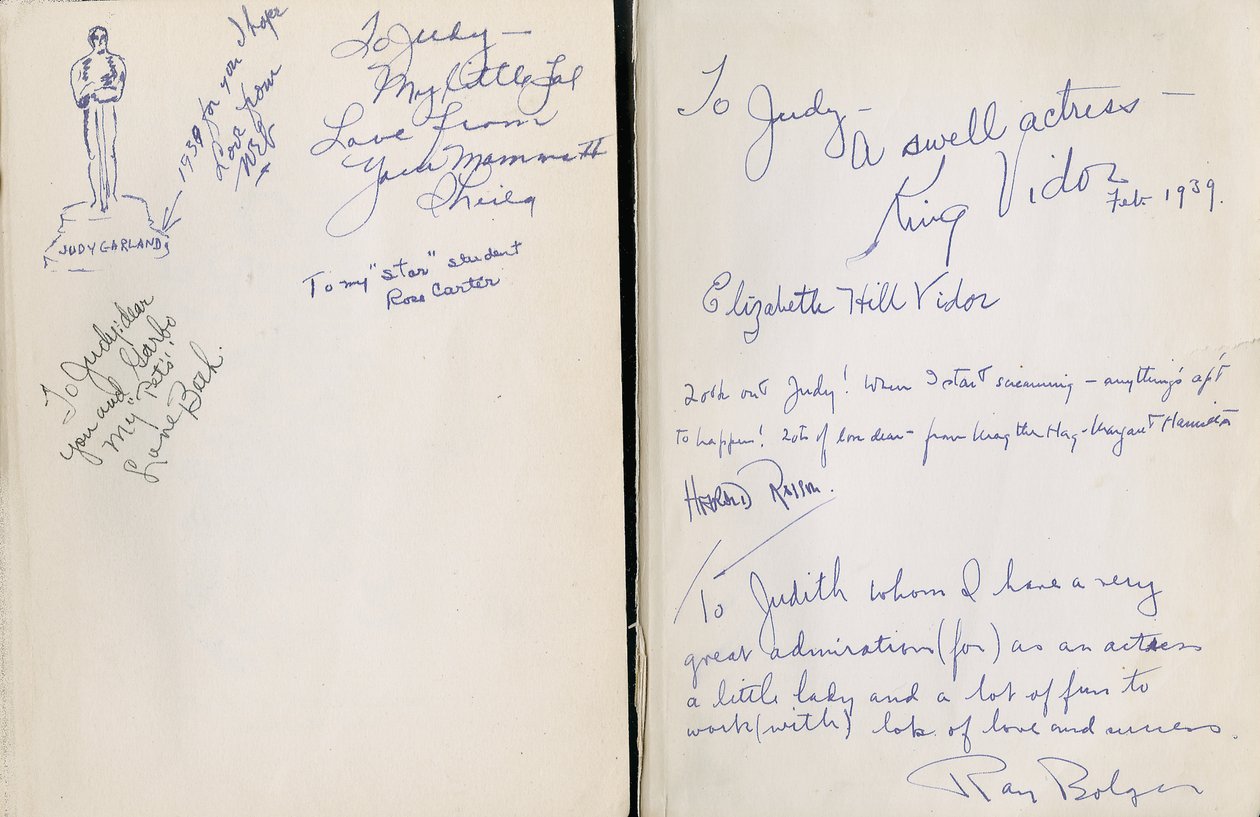 1939 for you I hope
Love from
JUDY GARLAND
To Judy —
My Little Gal
Love from
Your Mamma II
Sheila
To my "star" student
Rose Carter
To Judy: dear
you and Garbo
my "Pets"!
Lane Bach.
To Judy —
A swell actress —
King Vidor
Feb 1939.
Elizabeth Hill Vidor
Look out Judy! When I start screaming — anything's apt
to happen! Lots of love dear — from Mag the Hag — Margaret Hamilton
Harold Rosson.
To Judith whom I have a very
great admiration (for) as an actress
a little lady and a lot of fun to
work (with) lots of love and success.
Ray Bolger